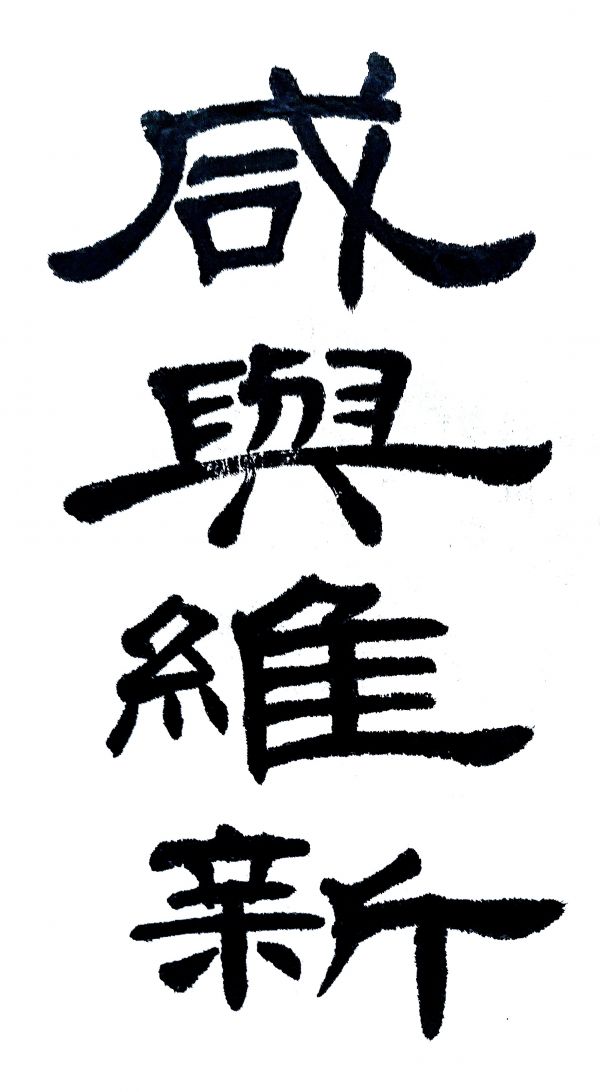 咸與維新